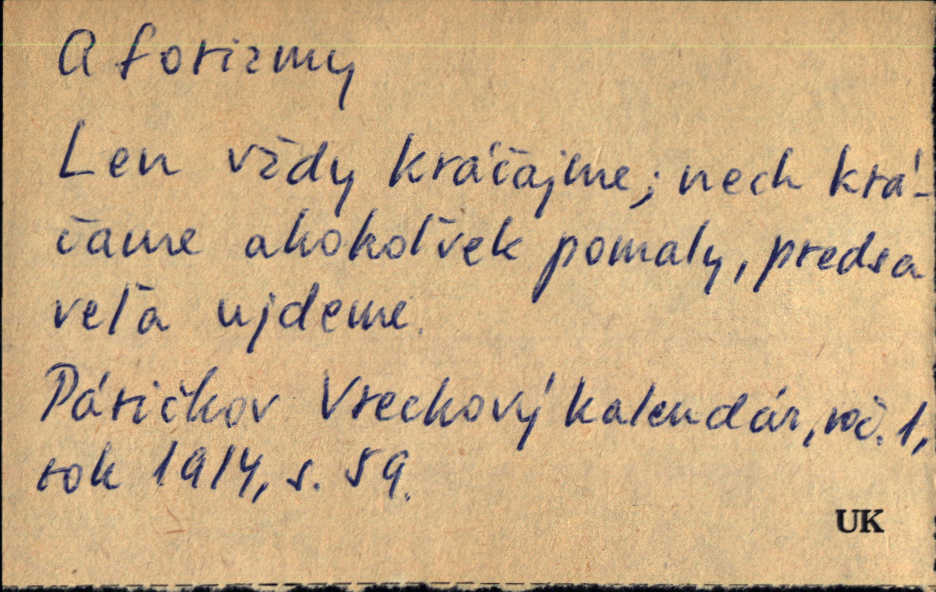 Aforizmy
Len vždy kráčajme; nech krá-
čame akokoľvek pomaly, predsa
veľa ujdeme.
Páričkov Vreckový kalendár, roč. 1,
rok 1914, s. 59.
UK